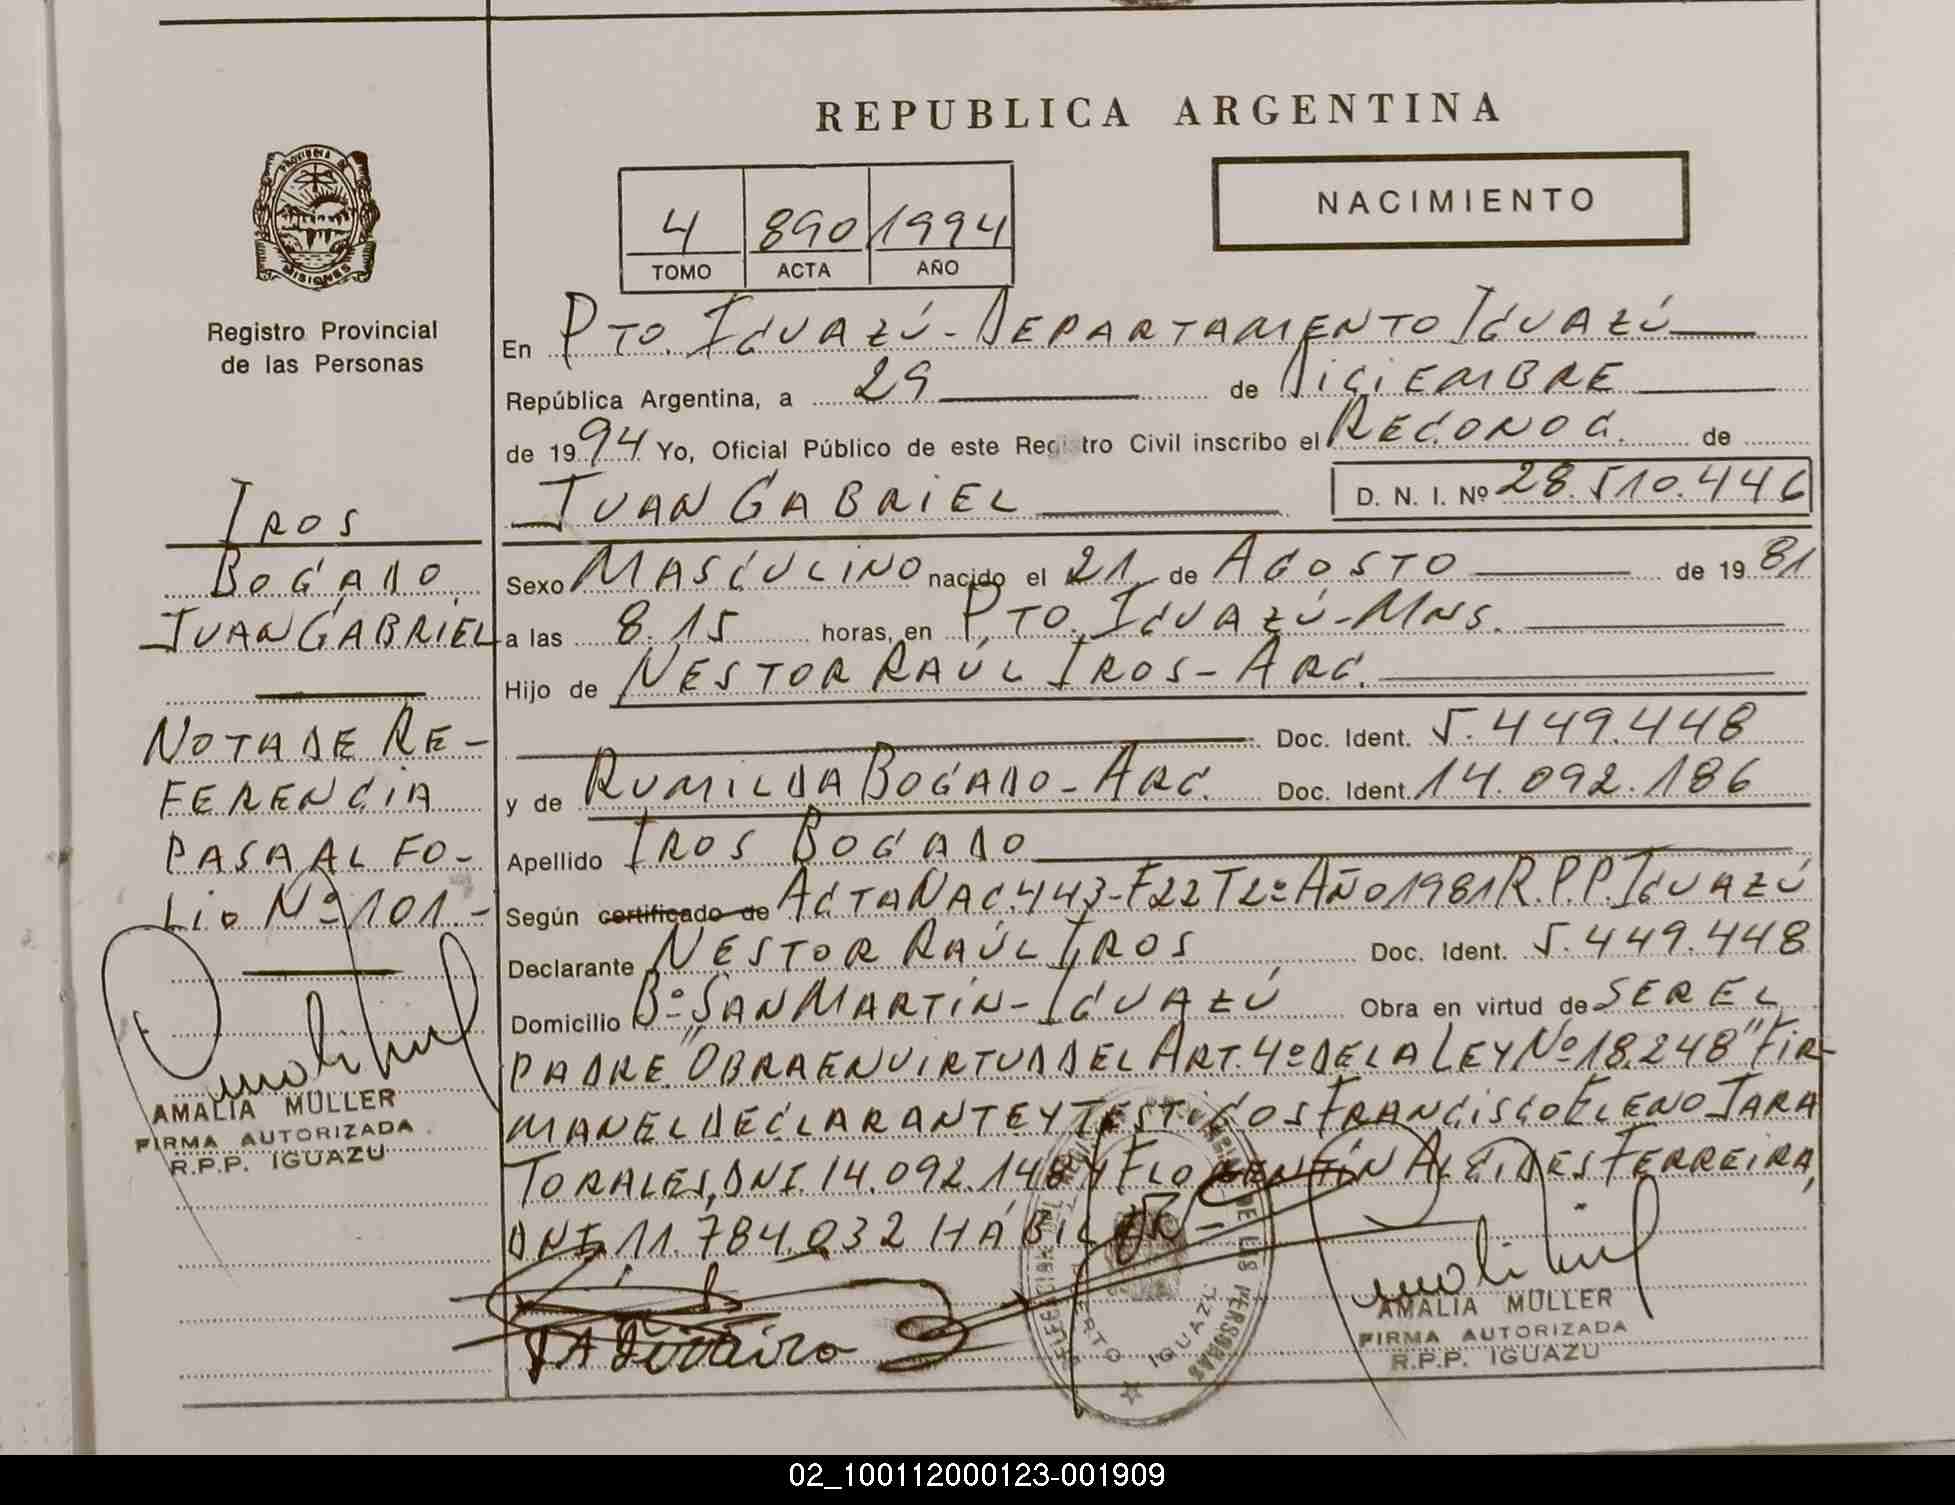 REPUBLICA ARGENTINA
NACIMIENTO
4 890 1994
TOMO ACTA AÑO
PROVINCIA DE
MISIONES
Registro Provincial
de las Personas
En PTO. IGUAZÚ - DEPARTAMENTO IGUAZÚ
República Argentina, a 29 de DICIEMBRE
de 1994 Yo, Oficial Público de este Registro Civil inscribo el RECONOC. de
JUAN GABRIEL D. N. I. Nº 28.510.446
IROS
BOGADO
JUAN GABRIEL
NOTA DE RE-
FERENCIA
PASA AL FO-
LIO Nº 101.-
AMALIA MULLER
FIRMA AUTORIZADA
R.P.P. IGUAZU
Sexo MASCULINO nacido el 21 de AGOSTO de 1981
a las 8.15 horas, en PTO. IGUAZÚ - MNS.
Hijo de NESTOR RAÚL IROS - ARG.
Doc. Ident. 5.449.448
y de RUMILDA BOGADO - ARG. Doc. Ident. 14.092.186
Apellido IROS BOGADO
Según certificado de ACTA NAC. 443 - F22 T2º AÑO 1981 R.P.P. IGUAZÚ
Declarante NESTOR RAÚL IROS Doc. Ident. 5.449.448
Domicilio Bº SAN MARTÍN - IGUAZÚ Obra en virtud de SER EL
PADRE "OBRA EN VIRTUD DEL ART. 4º DE LA LEY Nº 18.248" FIR-
MAN EL DECLARANTE Y TESTIGOS FRANCISCO ELENO JARA
TORALES, DNI. 14.092.148 Y FLORENTÍN ALCIDES FERREIRA,
DNI 11.784.032 HÁBILES.-
DE LAS PERSONAS
PUERTO IGUAZU
AMALIA MULLER
FIRMA AUTORIZADA
R.P.P. IGUAZU
02_100112000123-001909